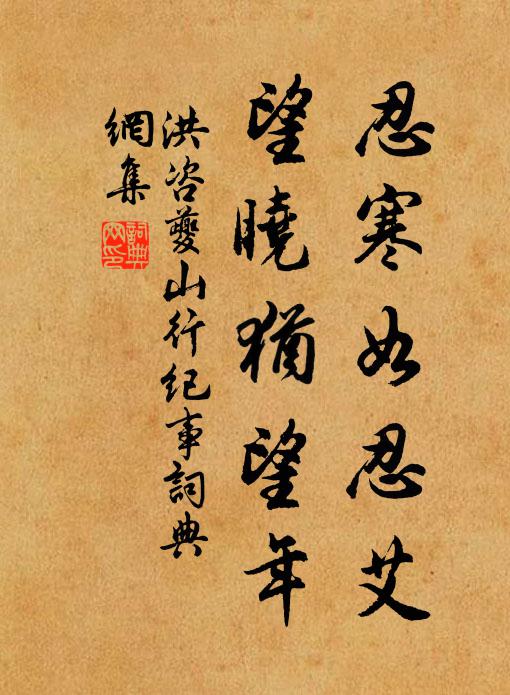 忍寒如忍艾
望曉猶望年
洪咨夔山行紀事詞典
網集
詞典網印